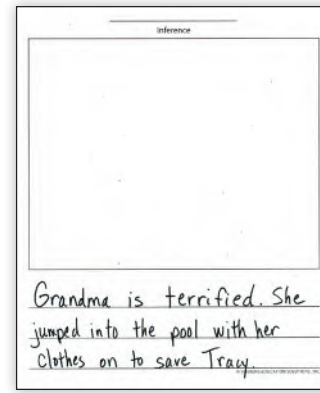 Inference
Grandma is terrified. She
jumped into the pool with her
clothes on to save Tracy.